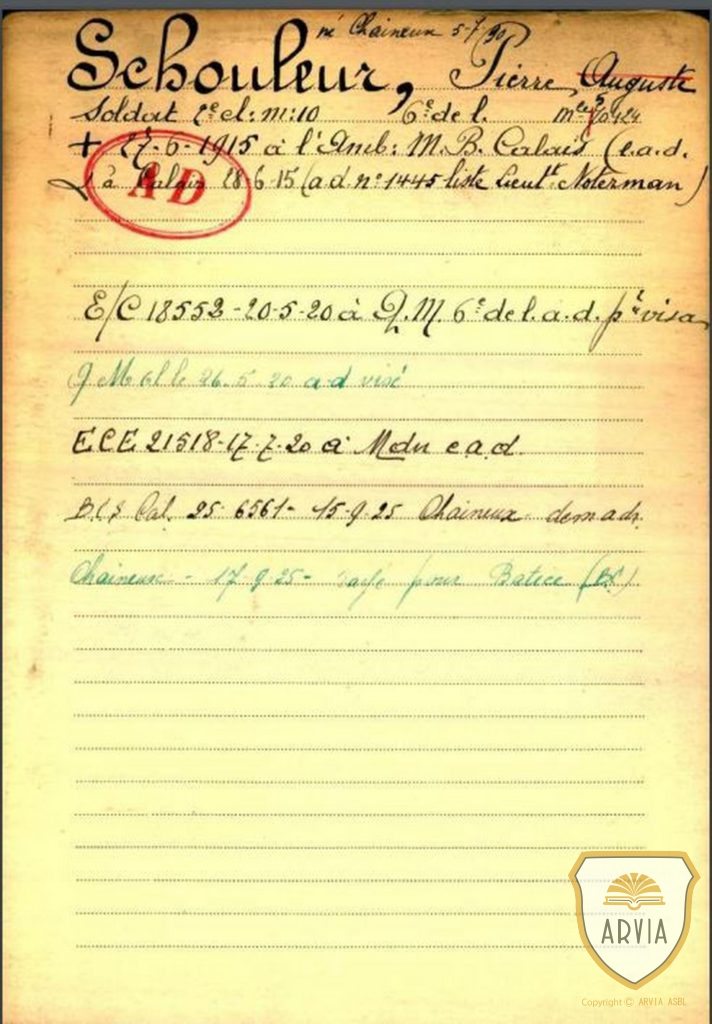 né Chaineux 5-7-90
Schouleur, Pierre Auguste
Soldat 2e cl: m: 10 6e de l. mle
+ 27-6-1915 à l'Amb: M.B. Calais (e.a.d.
à Calais 28-6-15 (a d n° 1445 liste Lieutt Noterman)
AD
E/C 18552 - 20-5-20 à Q.M. 6e de l. a.d. pr visa
Q M 6 l le 26.5.20 a d visé
ECE 21518-17-7-20 à Mdn e a d.
Cal. 25-6561- 15-9-25 Chaineux dem adr.
Chaineux - 17-9-25 - rayé pour Battice
ARVIA
Copyright © ARVIA ASBL